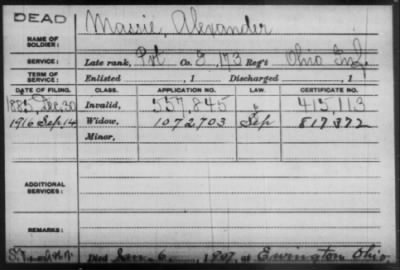 DEAD
NAME OF SOLDIER: Massie, Alexander
SERVICE: Late rank, Pvt Co. E, 173 Reg't Ohio Inf.
TERM OF SERVICE: Enlisted , 1 Discharged , 1
DATE OF FILING. CLASS. APPLICATION NO. LAW. CERTIFICATE NO.
1885, Dec, 30 Invalid, 557,845 415,113
1916 Sep, 14 Widow, 1072703 Sep 817372
Minor,
ADDITIONAL SERVICES:
REMARKS:
Died Jan. 6, 1907, at Ewington Ohio